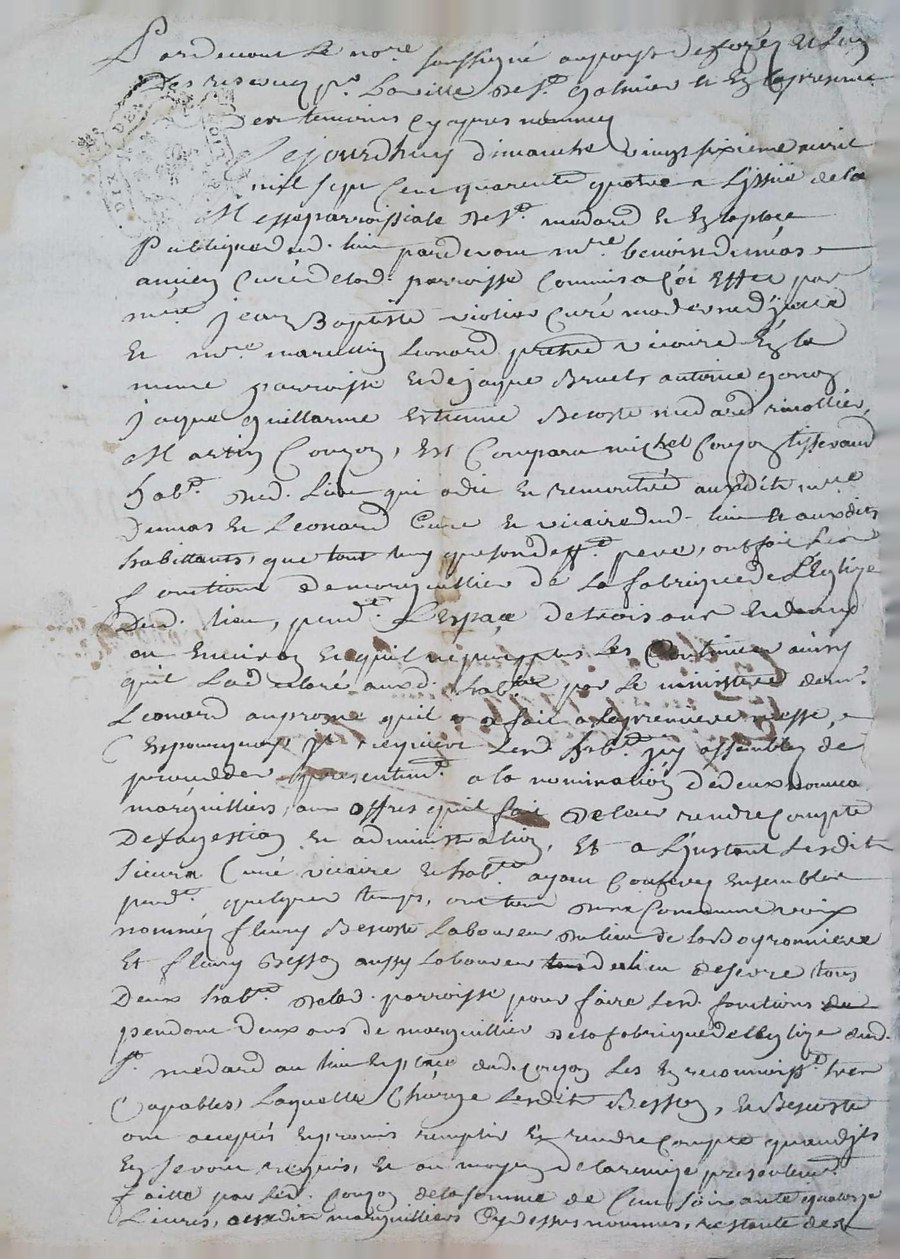 Pardevant le no.re soussigné au pays de forez et
reservé p.r la ville de S.t Galmier et en presence
des temoins cy apres nommez
Cejourdhuy dimanche vingt sixieme avril
mil sept cent quarente quatre a l'issüe de la
Messe parroissiale de S.t medard et en la place
Publique dud. lieu pardevant m.re benoist dumas
ancien Curé de lad. parroisse Commis a cet effet par
m.re jean Baptiste violier Curé moderne d'jcelle
et m.re marcellin Leonard pretre vicaire en la
meme parroisse et de jaque Bruel, antoine
jaque guillarme estienne Bescoste medard rivollier,
Martin Coujon, Est Comparu michel Coujon tisserand
hab.t dud. Lieu qui a dit et remontré auxdits m.re
Dumas et Leonard Curé et vicaire dud. lieu et auxdits
habittants, que tant luy que son deff.t pere, ont fait les
fonctions de marguillier de La fabrique de L'Eglize
Dud. lieu, pend.t L'Espace de trois ans et demy
ou environ et qu'il ne peut plus les Continuer ainsy
qu'il L'a declaré auxd. hab.ts par le ministere dud.
Leonard au prone qu'il a fait a la premiere messe,
C'est pourquoy jl requiert lesd. hab.ts jcy assemblez de
proceder presentem.t a la nomination de deux nouveaux
marguilliers, aux offres qu'il fait de leur rendre Compte
De sa gestion et administration, Et a L'jnstant lesdits
sieurs Curé vicaire et hab.ts ayant Conferez Ensemble
pend.t quelques temps, ont tous d'une Commune voix
nommés fleury Bescoste Laboureur du lieu de la Boyronniere
Et fleury Besson aussy laboureur du lieu de tous
Deux hab.ts de lad. parroisse pour faire lesd. fonctions
pendant deux ans de marguillier de la fabrique de l'eglize dud.
S.t medard au lieu et place dud. Coujon les en reconnoiss.t tres
Capables, Laquelle Charge lesdits Besson, et Bescoste
ont acceptés et promis remplir et rendre Compte quand jls
en seront requis, et au moyen de la remize presentem.t
faitte par led. Coujon de la somme de Cent soixante quatorze
Livres, auxdits marguilliers Cy dessus nommes, restante de